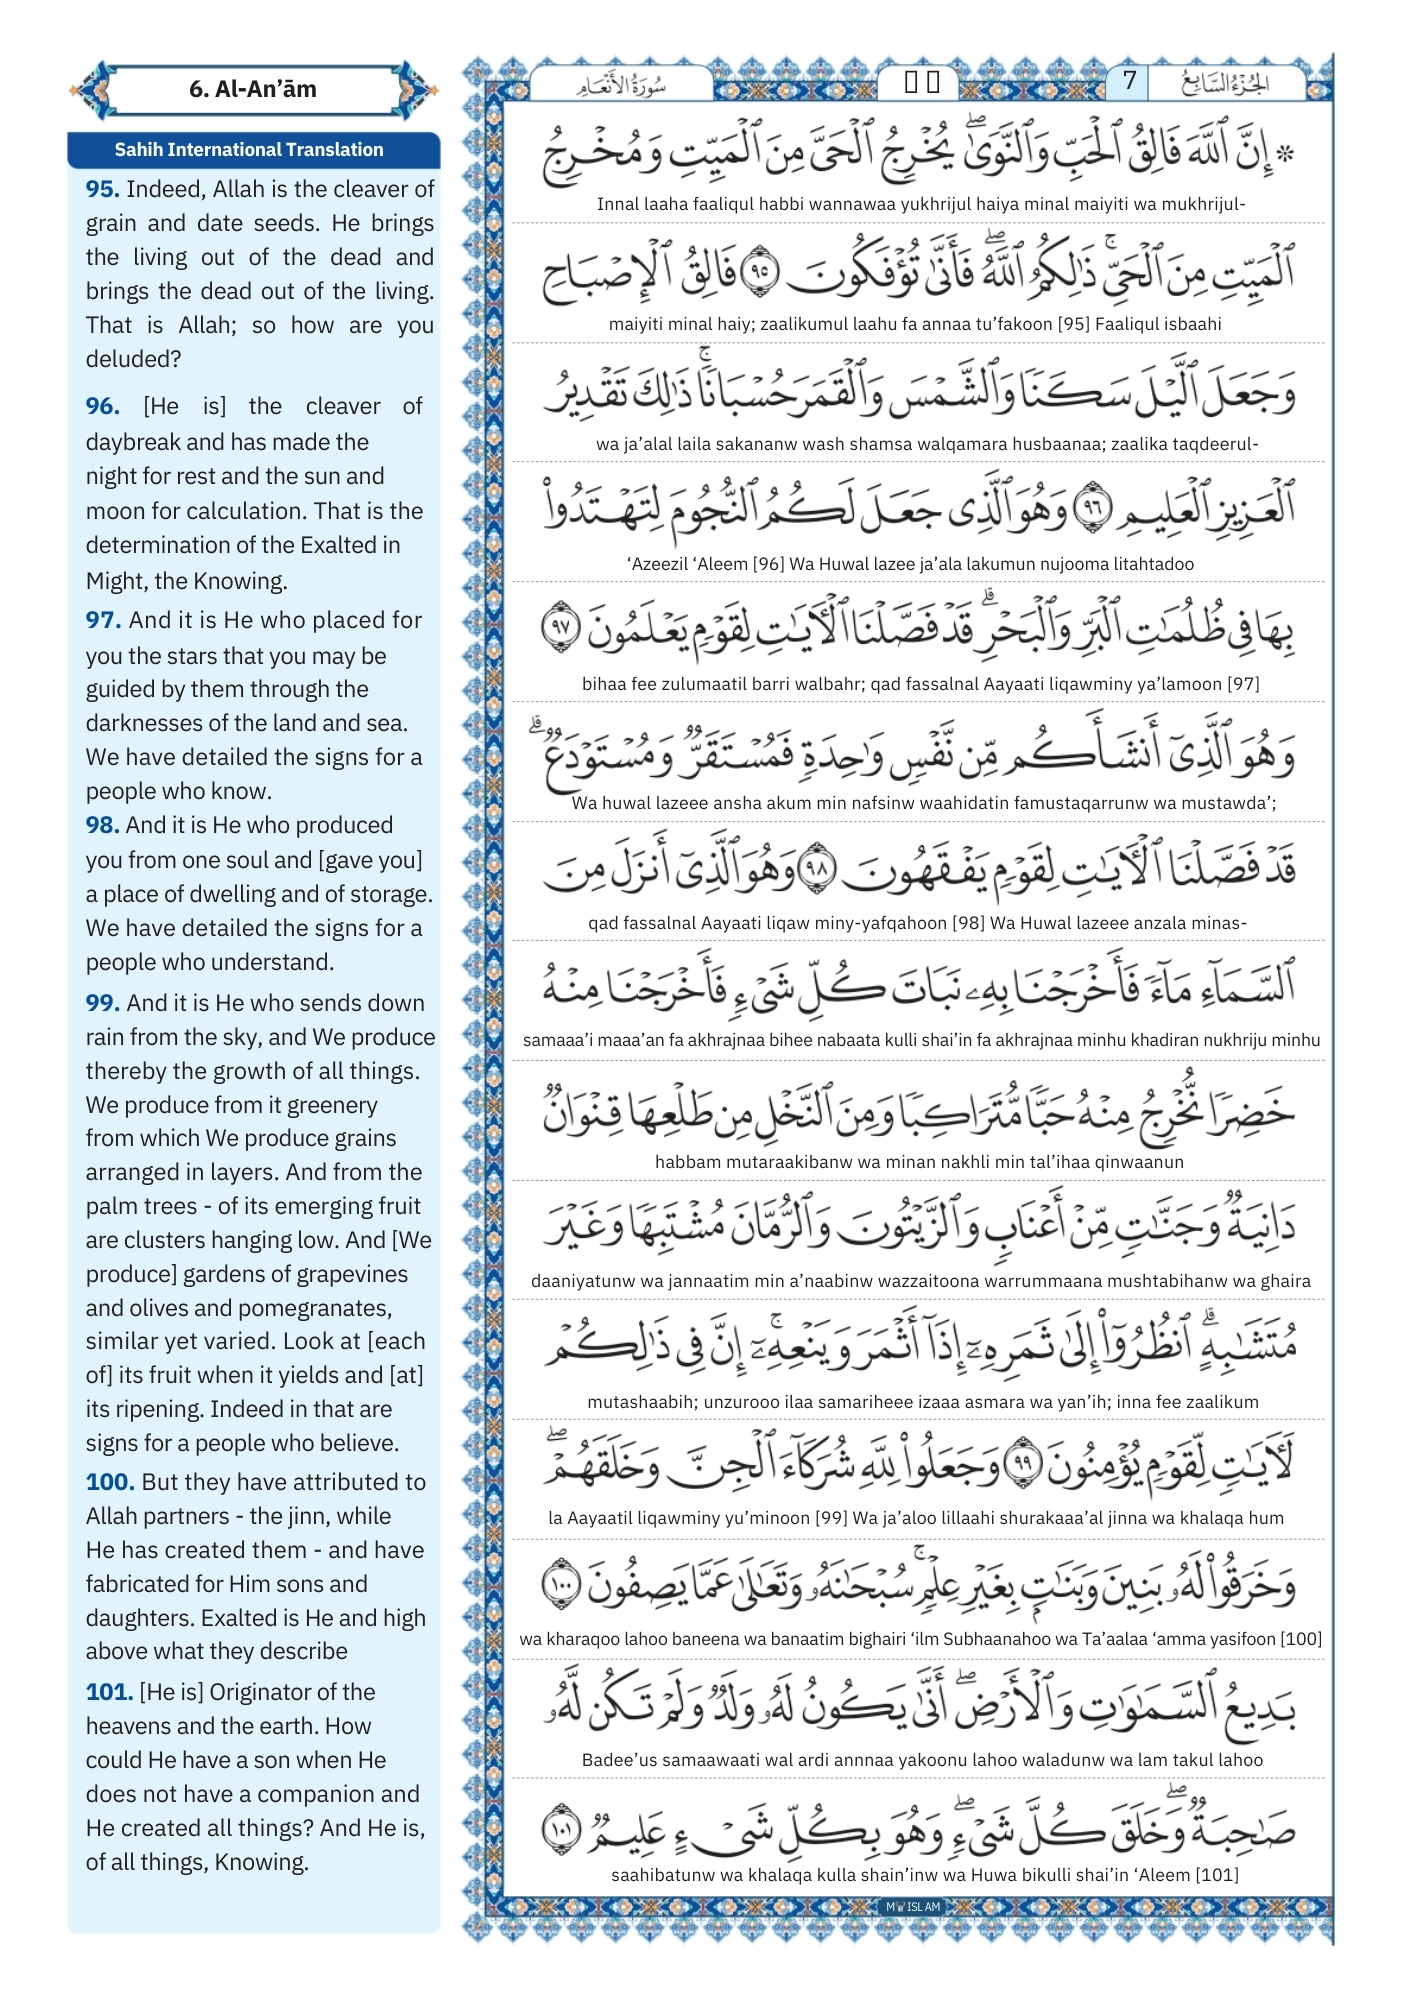 6. Al-An’ām
Sahih International Translation
95. Indeed, Allah is the cleaver of
grain and date seeds. He brings
the living out of the dead and
brings the dead out of the living.
That is Allah; so how are you
deluded?
96. [He is] the cleaver of
daybreak and has made the
night for rest and the sun and
moon for calculation. That is the
determination of the Exalted in
Might, the Knowing.
97. And it is He who placed for
you the stars that you may be
guided by them through the
darknesses of the land and sea.
We have detailed the signs for a
people who know.
98. And it is He who produced
you from one soul and [gave you]
a place of dwelling and of storage.
We have detailed the signs for a
people who understand.
99. And it is He who sends down
rain from the sky, and We produce
thereby the growth of all things.
We produce from it greenery
from which We produce grains
arranged in layers. And from the
palm trees - of its emerging fruit
are clusters hanging low. And [We
produce] gardens of grapevines
and olives and pomegranates,
similar yet varied. Look at [each
of] its fruit when it yields and [at]
its ripening. Indeed in that are
signs for a people who believe.
100. But they have attributed to
Allah partners - the jinn, while
He has created them - and have
fabricated for Him sons and
daughters. Exalted is He and high
above what they describe
101. [He is] Originator of the
heavens and the earth. How
could He have a son when He
does not have a companion and
He created all things? And He is,
of all things, Knowing.
سُورَةُ الأَنْعَام
7 الجُزْءُ السَّابِعُ
۞ إِنَّ ٱللَّهَ فَالِقُ ٱلْحَبِّ وَٱلنَّوَىٰ ۖ يُخْرِجُ ٱلْحَىَّ مِنَ ٱلْمَيِّتِ وَمُخْرِجُ
Innal laaha faaliqul habbi wannawaa yukhrijul haiya minal maiyiti wa mukhrijul-
ٱلْمَيِّتِ مِنَ ٱلْحَىِّ ۚ ذَٰلِكُمُ ٱللَّهُ ۖ فَأَنَّىٰ تُؤْفَكُونَ ٩٥ فَالِقُ ٱلْإِصْبَاحِ
maiyiti minal haiy; zaalikumul laahu fa annaa tu’fakoon [95] Faaliqul isbaahi
وَجَعَلَ ٱلَّيْلَ سَكَنًا وَٱلشَّمْسَ وَٱلْقَمَرَ حُسْبَانًا ۚ ذَٰلِكَ تَقْدِيرُ
wa ja’alal laila sakananw wash shamsa walqamara husbaanaa; zaalika taqdeerul-
ٱلْعَزِيزِ ٱلْعَلِيمِ ٩٦ وَهُوَ ٱلَّذِى جَعَلَ لَكُمُ ٱلنُّجُومَ لِتَهْتَدُوا۟
‘Azeezil ‘Aleem [96] Wa Huwal lazee ja’ala lakumun nujooma litahtadoo
بِهَا فِى ظُلُمَٰتِ ٱلْبَرِّ وَٱلْبَحْرِ ۗ قَدْ فَصَّلْنَا ٱلْءَايَٰتِ لِقَوْمٍ يَعْلَمُونَ ٩٧
bihaa fee zulumaatil barri walbahr; qad fassalnal Aayaati liqawminy ya’lamoon [97]
وَهُوَ ٱلَّذِىٓ أَنشَأَكُم مِّن نَّفْسٍ وَٰحِدَةٍ فَمُسْتَقَرٌّ وَمُسْتَوْدَعٌ ۗ
Wa huwal lazeee ansha akum min nafsinw waahidatin famustaqarrunw wa mustawda’;
قَدْ فَصَّلْنَا ٱلْءَايَٰتِ لِقَوْمٍ يَفْقَهُونَ ٩٨ وَهُوَ ٱلَّذِىٓ أَنزَلَ مِنَ
qad fassalnal Aayaati liqaw miny-yafqahoon [98] Wa Huwal lazeee anzala minas-
ٱلسَّمَآءِ مَآءً فَأَخْرَجْنَا بِهِۦ نَبَاتَ كُلِّ شَىْءٍ فَأَخْرَجْنَا مِنْهُ
samaaa’i maaa’an fa akhrajnaa bihee nabaata kulli shai’in fa akhrajnaa minhu khadiran nukhriju minhu
خَضِرًا نُّخْرِجُ مِنْهُ حَبًّا مُّتَرَاكِبًا وَمِنَ ٱلنَّخْلِ مِن طَلْعِهَا قِنْوَانٌ
habbam mutaraakibanw wa minan nakhli min tal’ihaa qinwaanun
دَانِيَةٌ وَجَنَّٰتٍ مِّنْ أَعْنَابٍ وَٱلزَّيْتُونَ وَٱلرُّمَّانَ مُشْتَبِهًا وَغَيْرَ
daaniyatunw wa jannaatim min a’naabinw wazzaitoona warrummaana mushtabihanw wa ghaira
مُتَشَٰبِهٍ ۗ ٱنظُرُوٓا۟ إِلَىٰ ثَمَرِهِۦٓ إِذَآ أَثْمَرَ وَيَنْعِهِۦٓ ۚ إِنَّ فِى ذَٰلِكُمْ
mutashaabih; unzurooo ilaa samariheee izaaa asmara wa yan’ih; inna fee zaalikum
لَءَايَٰتٍ لِّقَوْمٍ يُؤْمِنُونَ ٩٩ وَجَعَلُوا۟ لِلَّهِ شُرَكَآءَ ٱلْجِنَّ وَخَلَقَهُمْ ۖ
la Aayaatil liqawminy yu’minoon [99] Wa ja’aloo lillaahi shurakaaa’al jinna wa khalaqa hum
وَخَرَقُوا۟ لَهُۥ بَنِينَ وَبَنَٰتٍۭ بِغَيْرِ عِلْمٍ ۚ سُبْحَٰنَهُۥ وَتَعَٰلَىٰ عَمَّا يَصِفُونَ ١٠٠
wa kharaqoo lahoo baneena wa banaatim bighairi ‘ilm Subhaanahoo wa Ta’aalaa ‘amma yasifoon [100]
بَدِيعُ ٱلسَّمَٰوَٰتِ وَٱلْأَرْضِ ۖ أَنَّىٰ يَكُونُ لَهُۥ وَلَدٌ وَلَمْ تَكُن لَّهُۥ
Badee’us samaawaati wal ardi annnaa yakoonu lahoo waladunw wa lam takul lahoo
صَٰحِبَةٌ ۖ وَخَلَقَ كُلَّ شَىْءٍ ۖ وَهُوَ بِكُلِّ شَىْءٍ عَلِيمٌ ١٠١
saahibatunw wa khalaqa kulla shain’inw wa Huwa bikulli shai’in ‘Aleem [101]